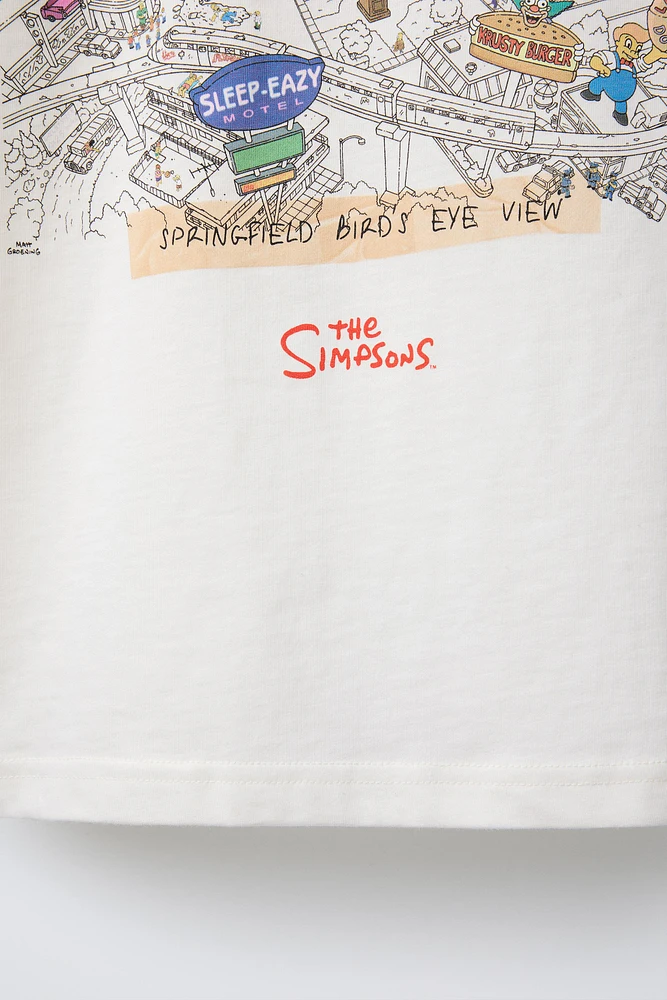 KRUSTY BURGER
SLEEP-EAZY
MOTEL
SPRINGFIELD BIRDS EYE VIEW
MATT
GROENING
THE
SIMPSONS™